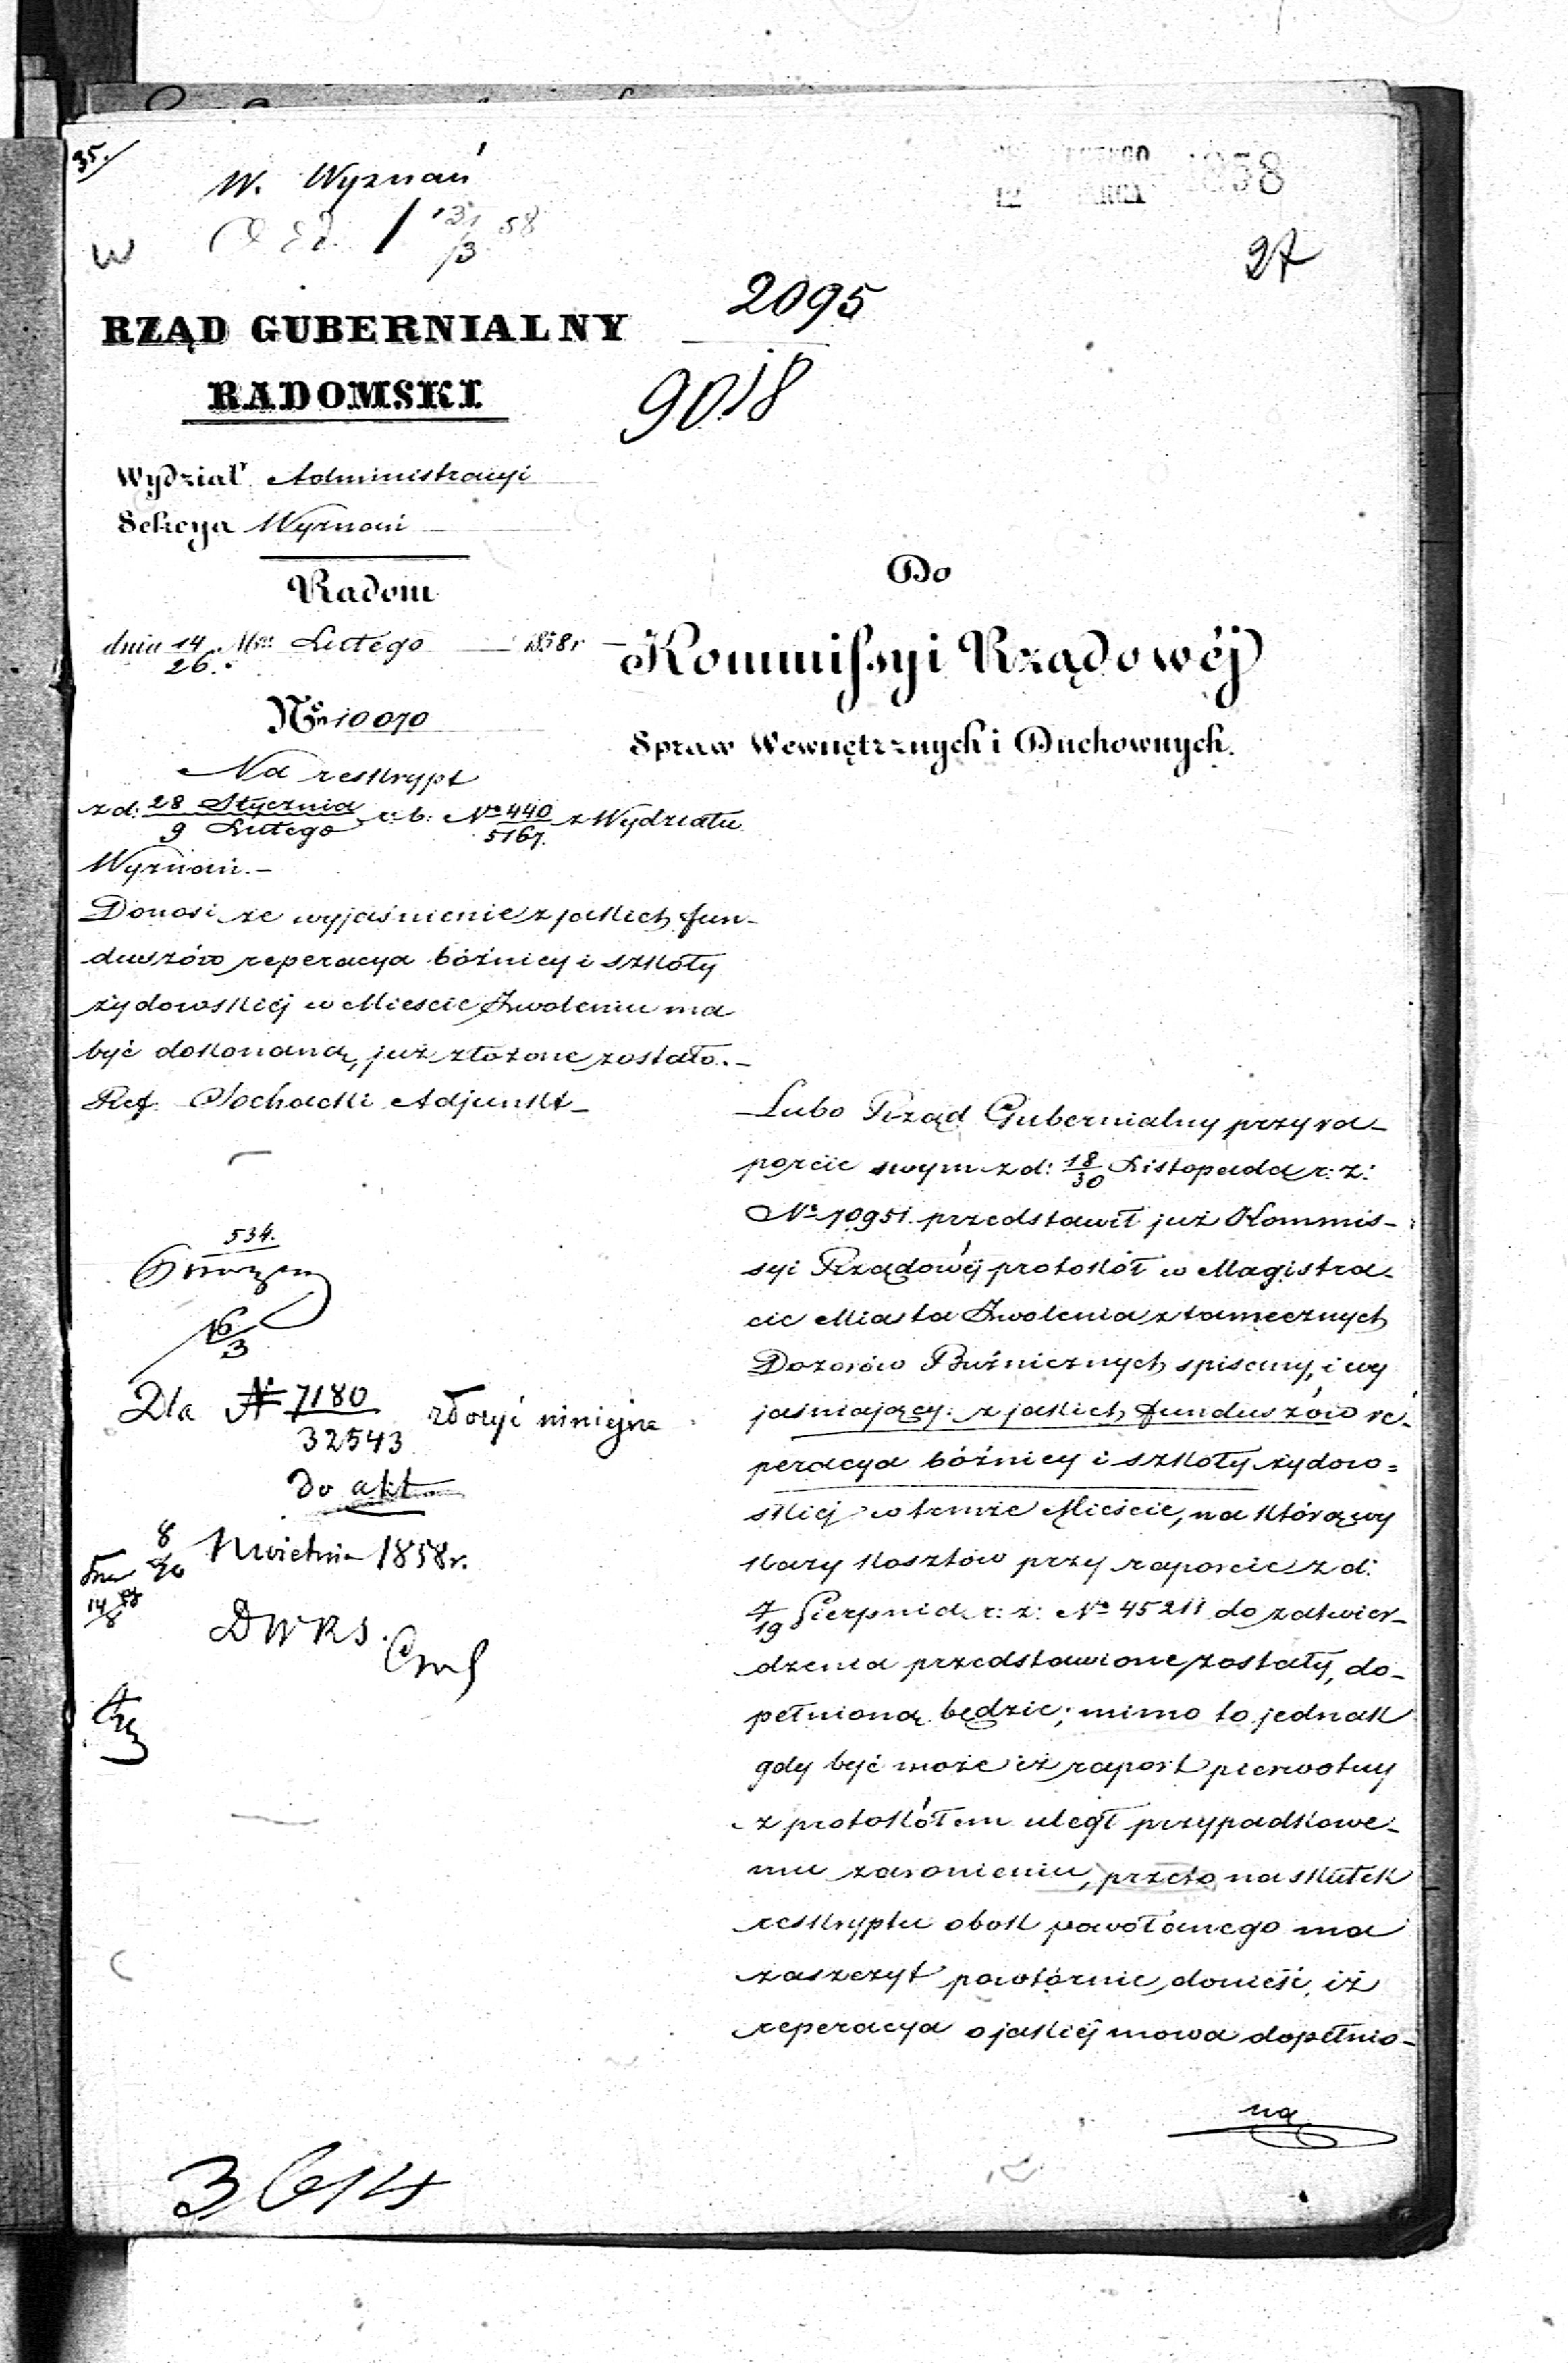 35.
W. Wyznań
1858
27
W
2095
9018
RZĄD GUBERNIALNY
RADOMSKI
Wydział Administracyi
Sekcya Wyznań
Radom
dnia 14/26 Mca Lutego 1858 r
No 10070
Na reskrypt
z d: 28 Stycznia/9 Lutego r. b: No 440/5167. z Wydziału
Wyznań.-
Donosi że wyjaśnienie z jakich fun-
duszów reperacya bóźnicy i szkoły
żydowskiéj w Mieście Zwoleniu ma
być dokonaną, już złożone zostało.-
Ref. Sochacki Adjunkt-
534.
16/3
Dla N 7180/32543 złożyć niniejsze
do akt
8/20 Kwietnia 1858 r.
DWRS.
3614
Do
Kommissyi Rządowéj
Spraw Wewnętrznych i Duchownych.
Lubo Rząd Gubernialny przy ra-
porcie swym z d: 18/30 Listopada r: z:
No 70951. przedstawił już Kommis-
syi Rządowéj protokół w Magistra-
cie Miasta Zwolenia z tamecznych
Dozorów Bużnicznych spisany, i wy
jaśniający: z jakich funduszów re-
peracya bóźnicy i szkoły żydow=
skiéj w temże Mieście, na którą wy
kazy kosztów przy raporcie z d:
7/19 Sierpnia r: z: No 45211 do zatwier-
dzenia przedstawione zostały, do-
pełnioną będzie; mimo to jednak
gdy być może iż raport pierwotny
z protokółem uległ przypadkowe-
mu zaronieniu, przeto na skutek
reskryptu obok powołanego ma
zaszczyt powtórnie donieść, iż
reperacya o jakiéj mowa dopełnio-
ną